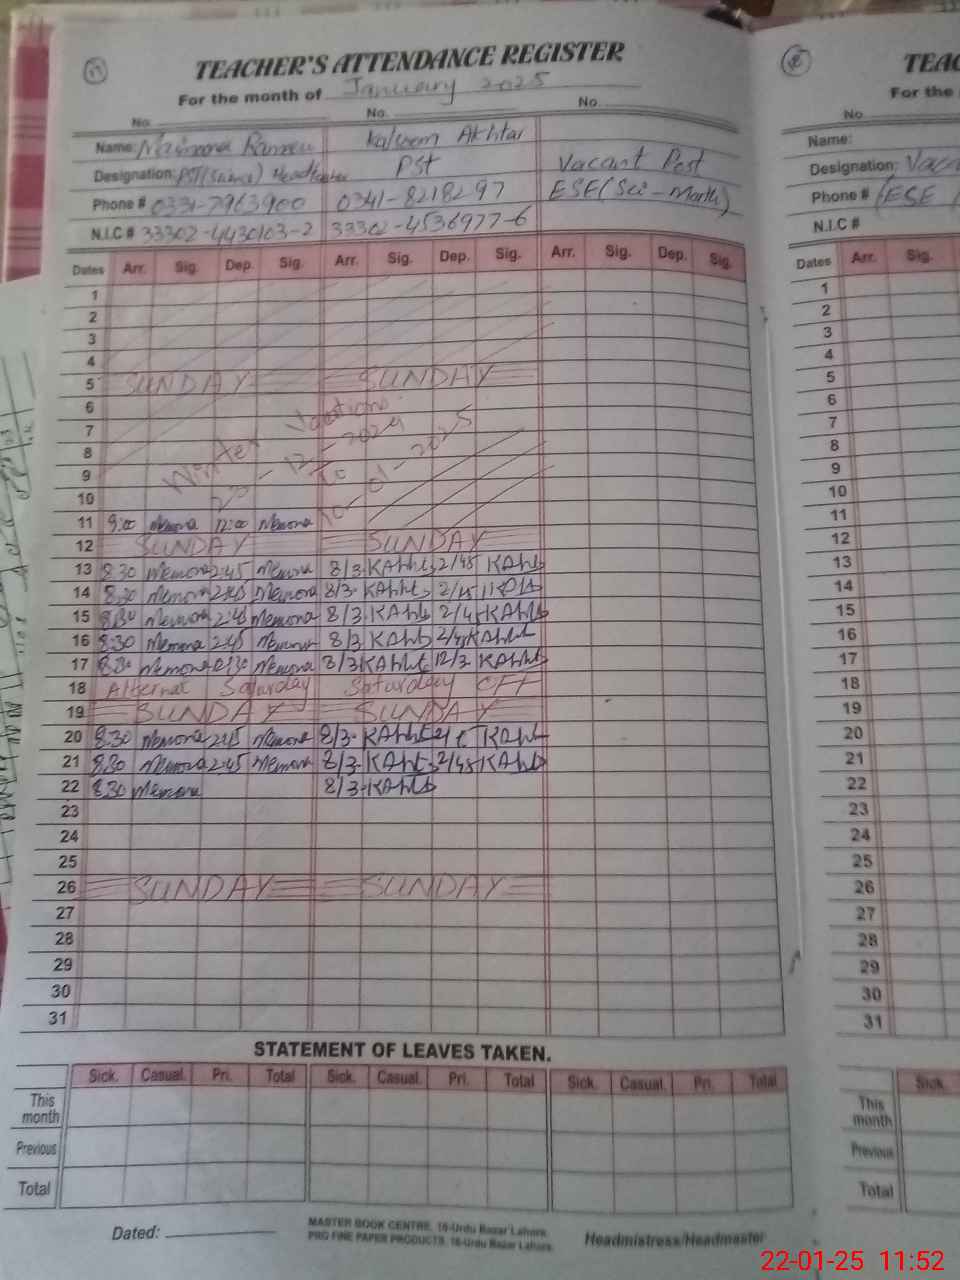 TEACHER'S ATTENDANCE REGISTER
For the month of January 2025
No. No. No.
Name: Kalsoom Akhtar
Designation: PST (Science) Headteacher PST Vacant Post
Phone # 0331-7963900 0341-8218297 ESE (Sci-Math)
N.I.C # 33302-4430103-2 33302-4536977-6
Dates Arr. Sig. Dep. Sig. Arr. Sig. Dep. Sig. Arr. Sig. Dep. Sig.
1
2
3
4
5 SUNDAY SUNDAY
6
7
8
9
10
Winter Vacations
11 9:00 Memona 12:00 Memona
12 SUNDAY SUNDAY
13 8:30 Memona 2:45 Memona 8/3. KAhht 2/45 KAht
14 8:30 Memona 2:45 Memona 8/3. KAhht 2/45
15 8:30 Memona 2:45 Memona 8/3. KAht 2/45 KAht
16 8:30 Memona 2:45 Memona 8/3. KAht 2/45 KAht
17 8:30 Memona Memona 8/3 KAhht 12/3 KAht
18 Alternat Saturday Saturday OFF
19 SUNDAY SUNDAY
20 8:30 Memona 2:45 Memona 8/3. KAhht KAht
21 8:30 Memona 2:45 Memona 8/3. KAht 2/45 KAht
22 8:30 Memona 8/3. KAht
23
24
25
26 SUNDAY SUNDAY
27
28
29
30
31
STATEMENT OF LEAVES TAKEN.
Sick. Casual. Pri. Total Sick. Casual. Pri. Total Sick. Casual. Pri. Total
This month
Previous
Total
Dated:
MASTER BOOK CENTRE. 16-Urdu Bazar Lahore.
PRO FINE PAPER PRODUCTS. 16-Urdu Bazar Lahore.
Headmistress/Headmaster
TEAC
For the
No.
Name:
Designation:
Phone # (ESE
N.I.C #
Dates Arr. Sig.
1
2
3
4
5
6
7
8
9
10
11
12
13
14
15
16
17
18
19
20
21
22
23
24
25
26
27
28
29
30
31
Sick.
This month
Previous
Total
22-01-25 11:52